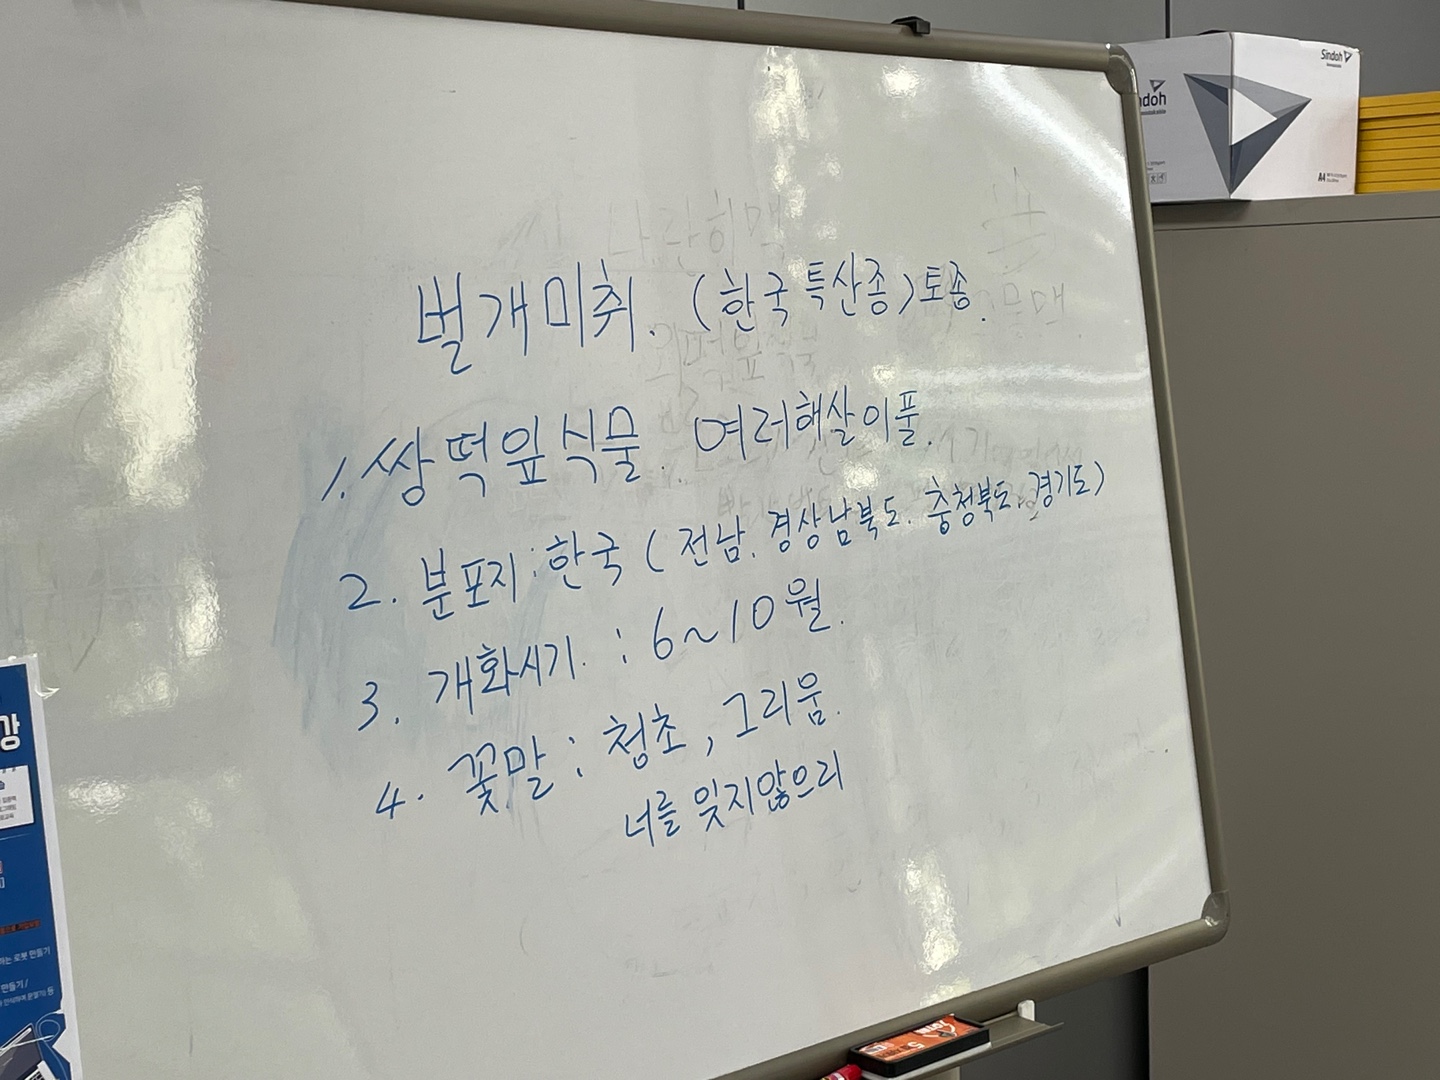 벌개미취. (한국특산종) 토종.
1. 쌍떡잎식물. 여러해살이풀.
2. 분포지 : 한국 ( 전남. 경상남북도. 충청북도. 경기도)
3. 개화시기 : 6~10월.
4. 꽃말 : 청초, 그리움.
너를 잊지않으리
Sindoh
Sindoh
A4
강
하는 로봇 만들기
만들기 /